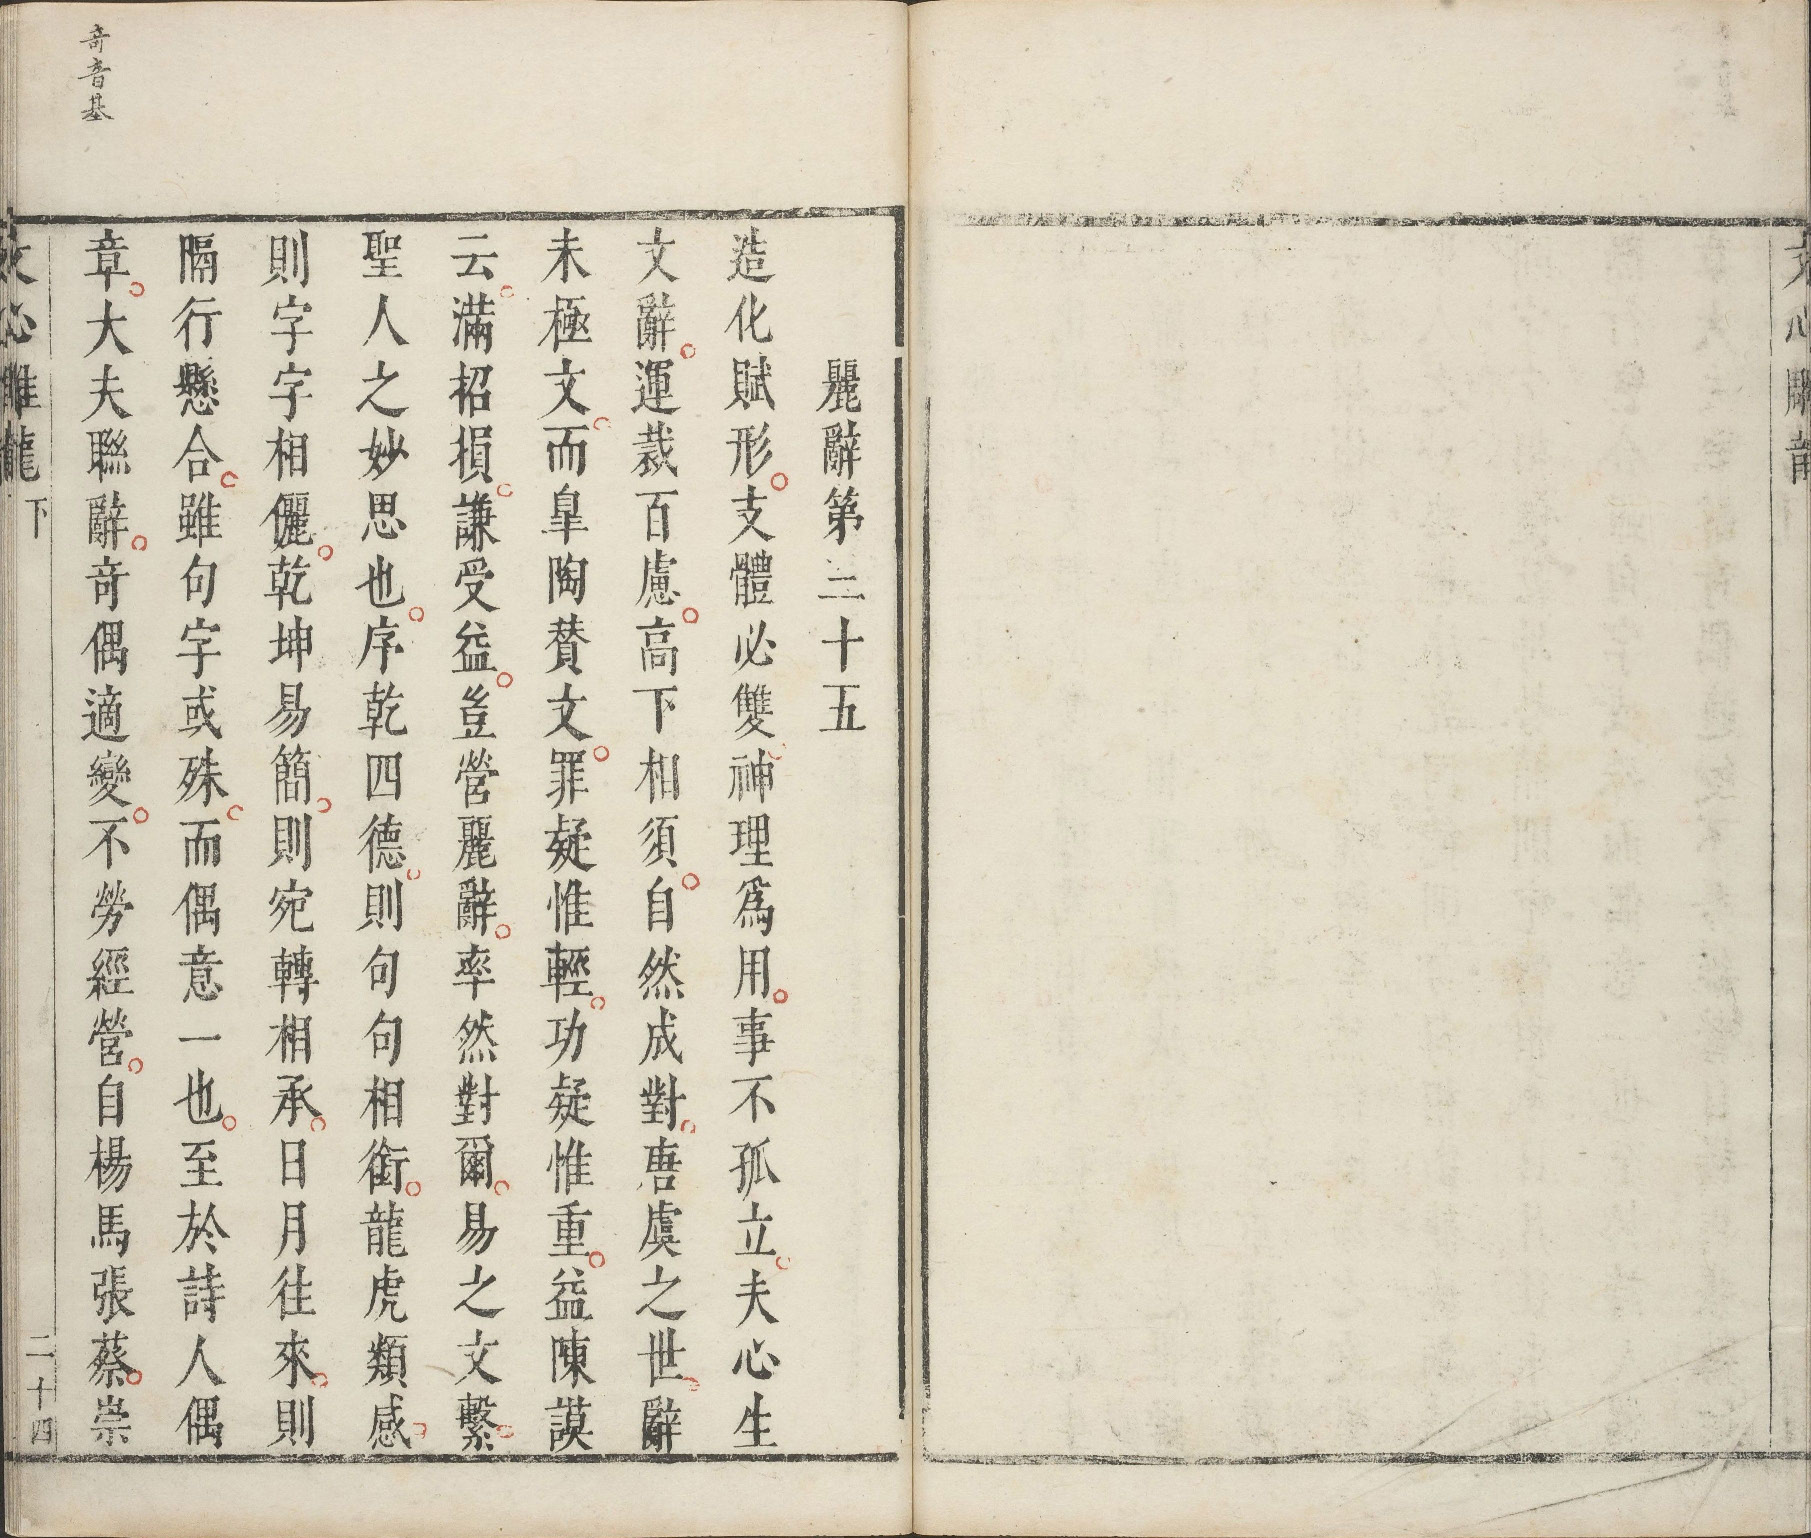 文心雕龍
麗辭第三十五
造化賦形。支體必雙。神理爲用。事不孤立。夫心生
文辭。運裁百慮。高下相須。自然成對。唐虞之世。辭
未極文。而皐陶賛文。罪疑惟輕。功疑惟重。益陳謨
云。滿招損。謙受益。豈營麗辭。率然對爾。易之文繫。
聖人之妙思也。序乾四德。則句句相銜。龍虎類感。
則字字相儷。乾坤易簡。則宛轉相承。日月往來。則
隔行懸合。雖句字或殊。而偶意一也。至於詩人偶
章。大夫聯辭。奇偶適變。不勞經營。自楊馬張蔡。崇
奇音基
文心雕龍 下 二十四